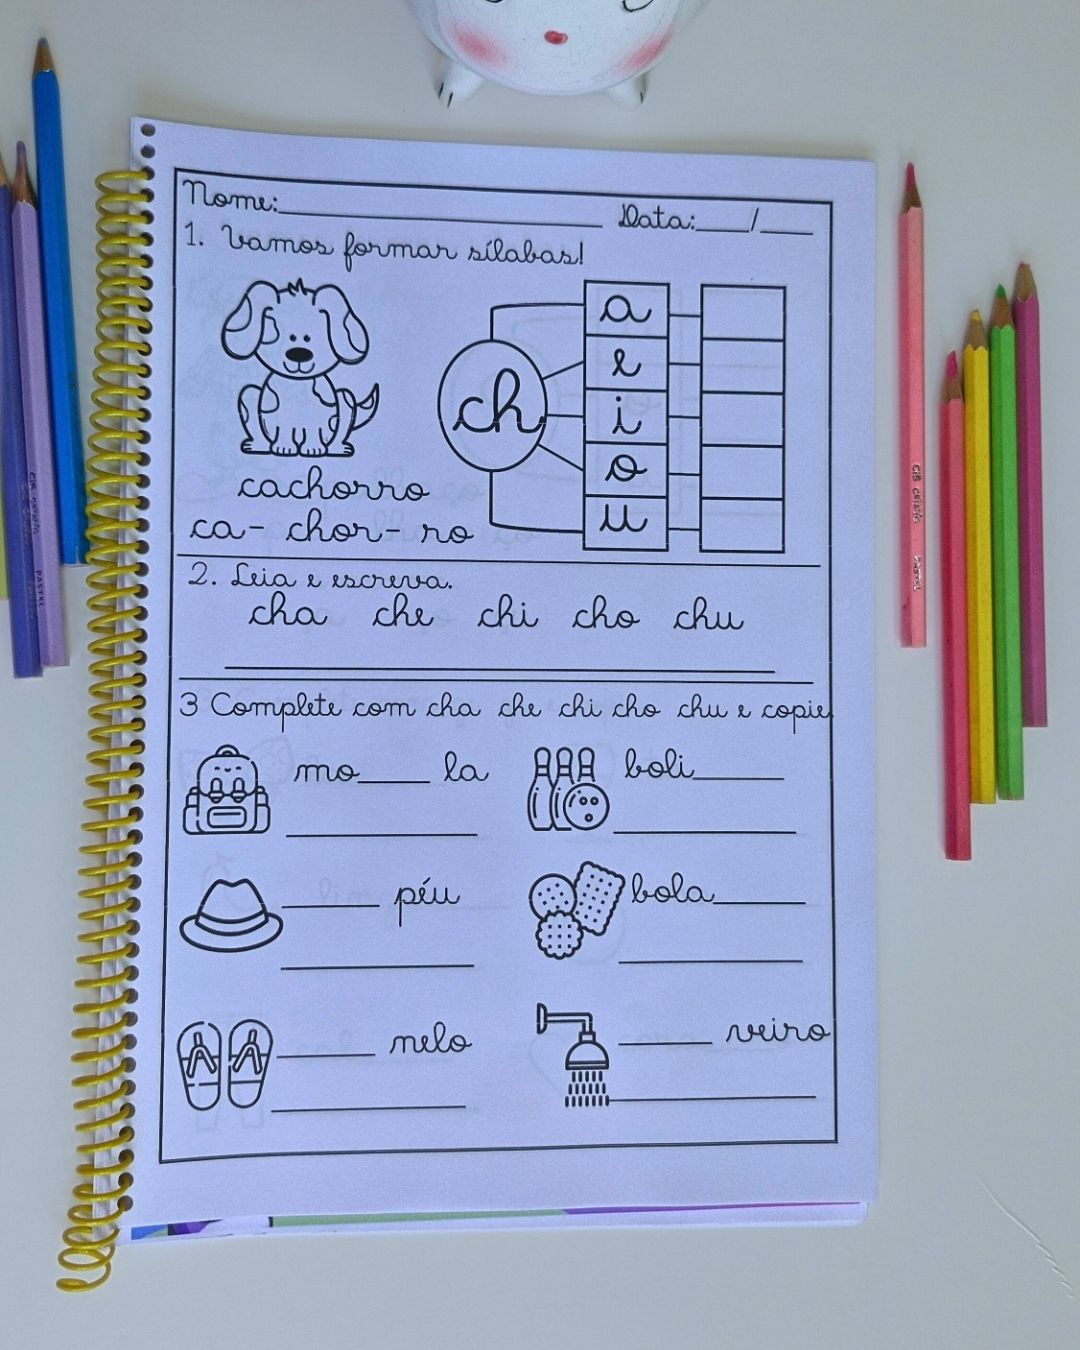 Nome:____________________ Data:____/____
1. Vamos formar sílabas!
a
e
ch
i
o
u
cachorro
ca- chor- ro
2. Leia e escreva.
cha che chi cho chu
3 Complete com cha che chi cho chu e copie.
mo_____ la
boli______
______ péu
bola______
______ nelo
______ veiro
CIS CRIATIÓ PASTEL
PASTEL